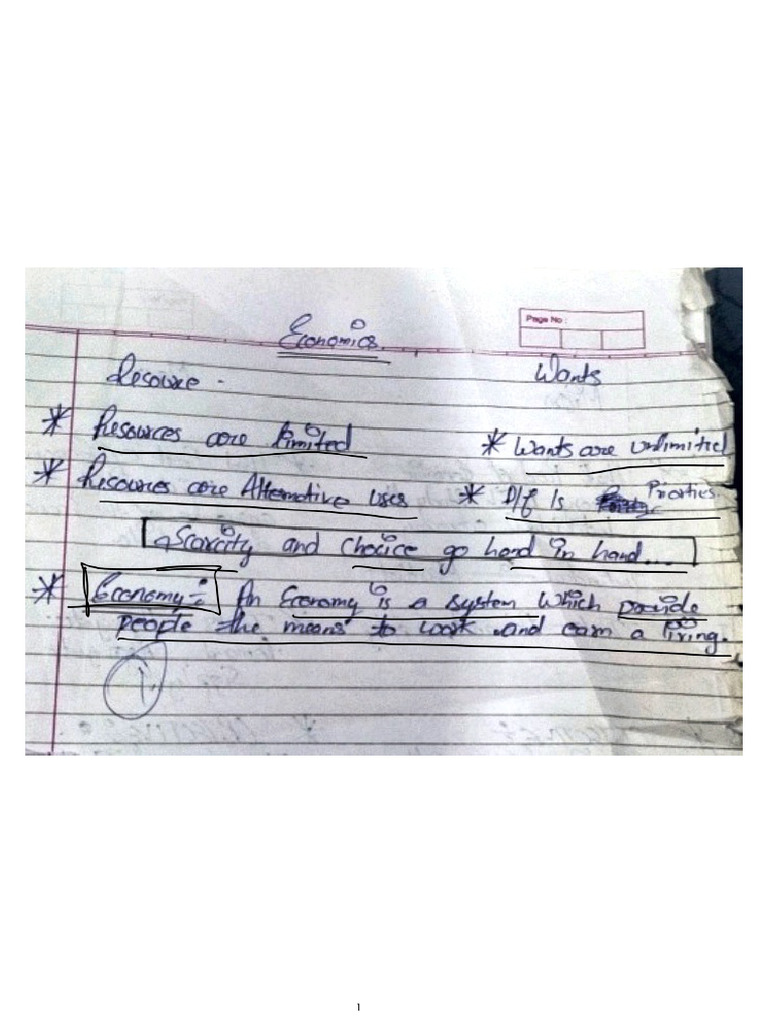 Economics.
Page No :
Resource - Wants
* Resources are limited * Wants are unlimited
* Resources are Alternative uses * D/f Is Priorties.
→ Scarcity and choice go hand in hand...
* Economy:- An Economy is a system which provide
people the means to work and earn a living.
1